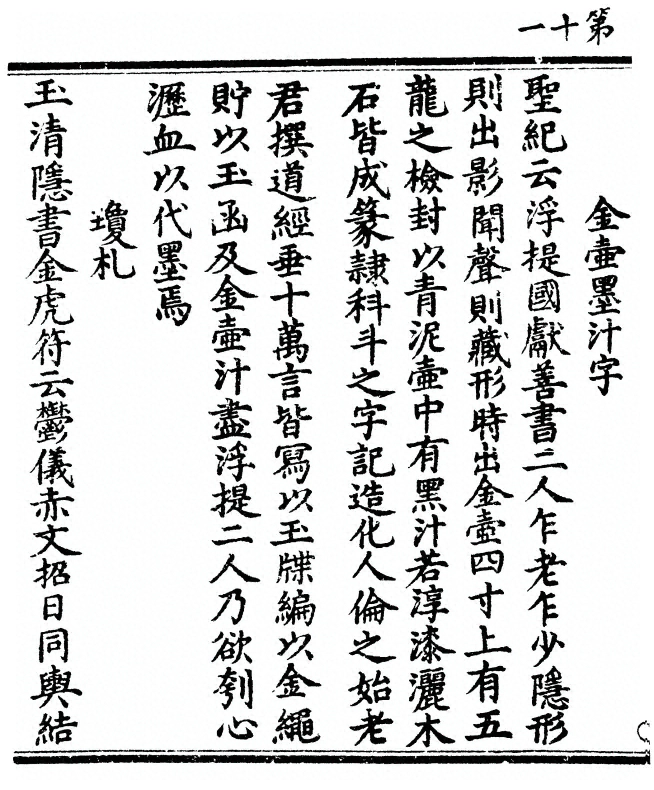 第十一
金壷墨汁字
聖紀云浮提國獻善書二人乍老乍少隱形
則出影聞聲則藏形時出金壷四寸上有五
龍之檢封以青泥壷中有黑汁若淳漆灑木
石皆成篆隷科斗之字記造化人倫之始老
君撰道經垂十萬言皆寫以玉牒編以金繩
貯以玉函及金壷汁盡浮提二人乃欲刳心
瀝血以代墨焉
瓊札
玉清隱書金虎符云鬱儀赤文招日同輿結